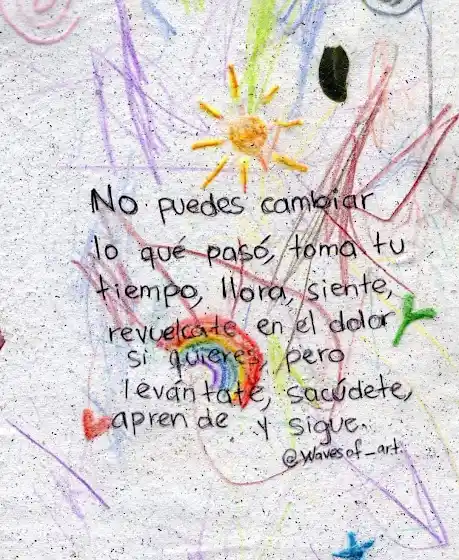 No puedes cambiar
lo que pasó, toma tu
tiempo, llora, siente,
revuelcate en el dolor
si quieres, pero
levántate, sacúdete,
aprende y sigue.
@Wavesof_art.